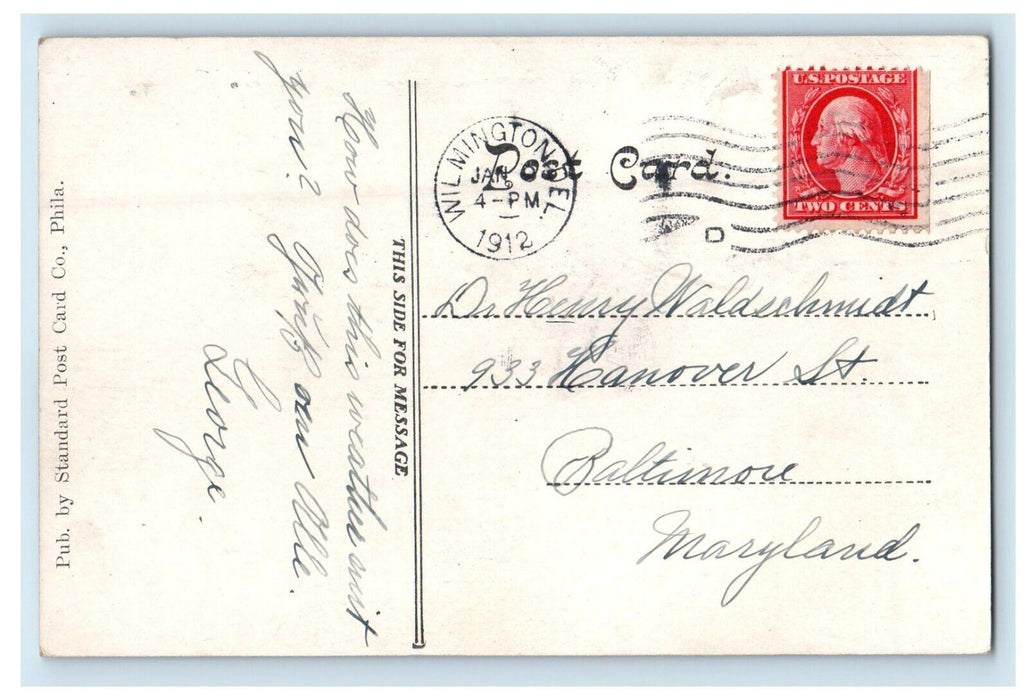 Post Card.
WILMINGTON, DEL.
JAN
4-PM
1912
U.S. POSTAGE
TWO CENTS
D
THIS SIDE FOR MESSAGE
How does this weather suit
you?
George.
Dr Henry Waldschmidt
933 Hanover St.
Baltimore
Maryland.
Pub. by Standard Post Card Co., Phila.